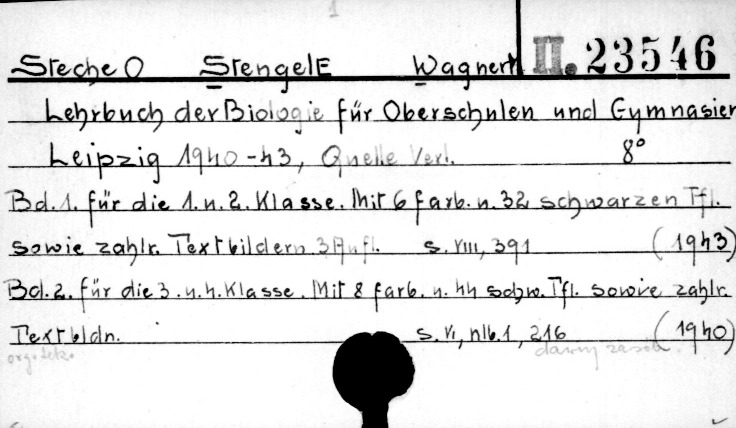 1
Steche O Stengel E Wagner H II. 23546
Lehrbuch der Biologie für Oberschulen und Gymnasien
Leipzig 1940-43, Quelle Verl. 8°
Bd. 1. für die 1. u. 2. Klasse. Mit 6 farb. u. 32 schwarzen Tfl.
sowie zahlr. Textbildern. 3 Aufl. s. VIII, 391 (1943)
Bd. 2. für die 3. u. 4. Klasse. Mit 8 farb. u. 44 schw. Tfl. sowie zahlr.
Textbldn. s. VI, nlb. 1, 216 (1940)
dawny zasób.